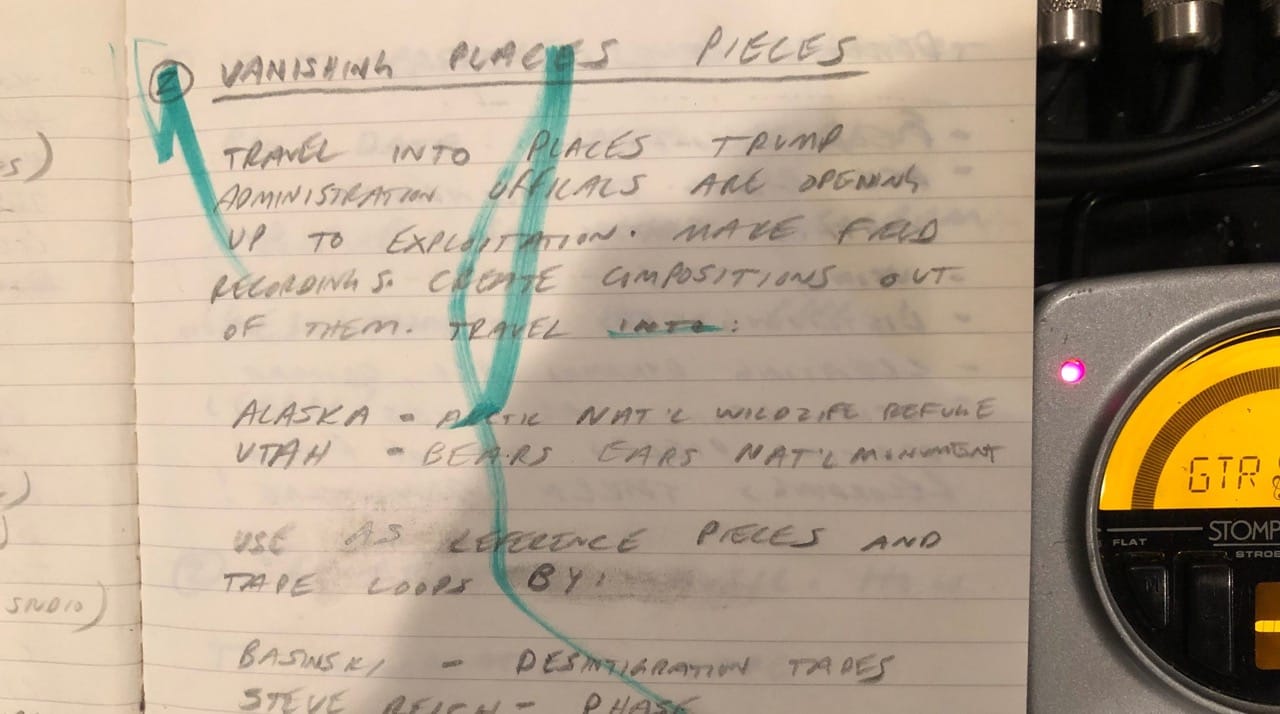 ② VANISHING PLACES PIECES
TRAVEL INTO PLACES TRUMP
ADMINISTRATION OFFICALS ARE OPENING
UP TO EXPLOITATION. MAKE FIELD
RECORDINGS. CREATE COMPOSITIONS OUT
OF THEM. TRAVEL INTO:
ALASKA - ARCTIC NAT'L WILDLIFE REFUGE
UTAH - BEARS EARS NAT'L MONUMENT
USE AS REFERENCE PIECES AND
TAPE LOOPS BY:
BASINSKI - DESINTIGRATION TAPES
STEVE REICH - PHASE
STUDIO)
GTR
STOMP
FLAT
STROB